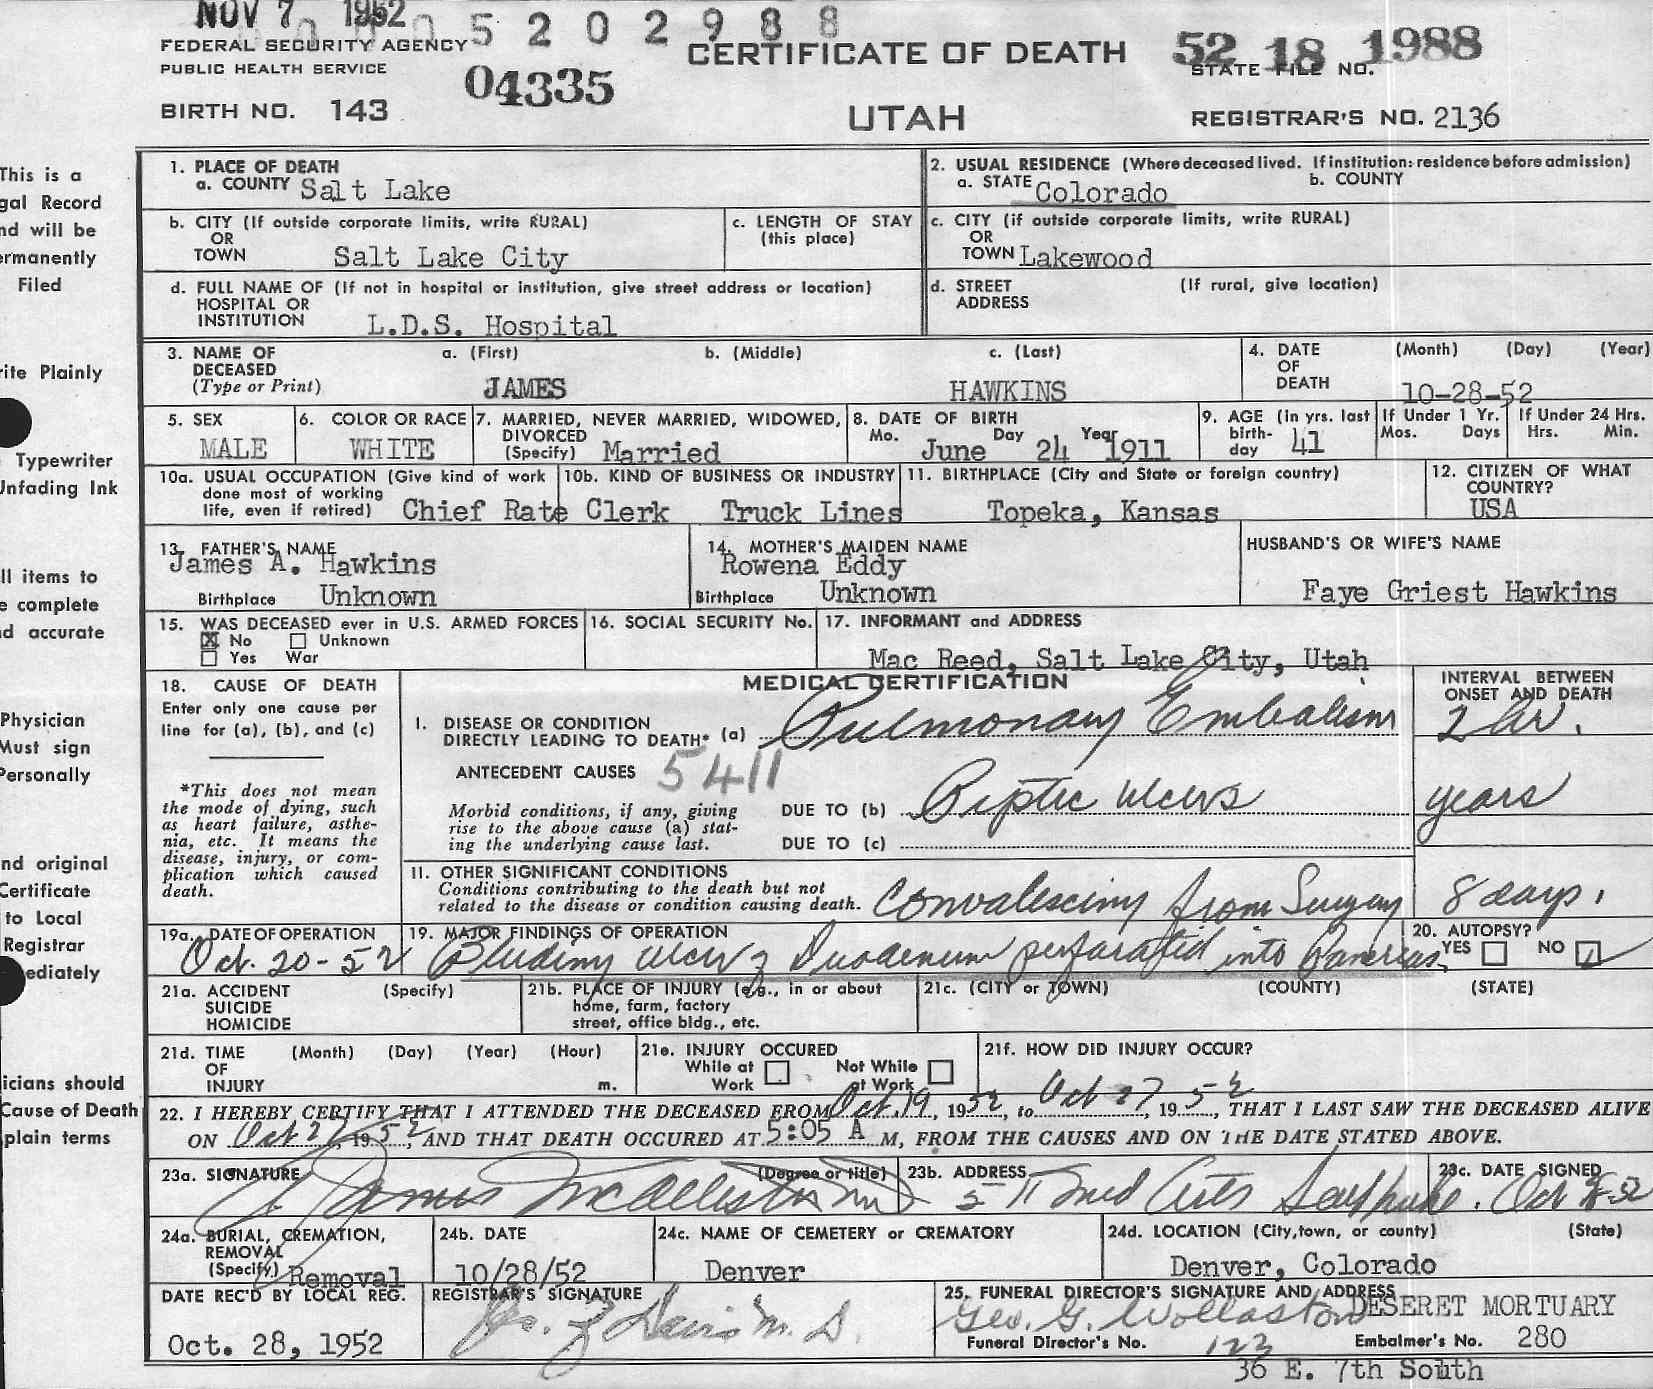 NOV 7 1952
0005202988
FEDERAL SECURITY AGENCY
PUBLIC HEALTH SERVICE
04335
CERTIFICATE OF DEATH
52 18 1988
STATE FILE NO.
BIRTH NO. 143
UTAH
REGISTRAR'S NO. 2136
This is a
gal Record
nd will be
ermanently
Filed
rite Plainly
Typewriter
Unfading Ink
ll items to
e complete
nd accurate
Physician
Must sign
Personally
nd original
Certificate
to Local
Registrar
ediately
icians should
Cause of Death
plain terms
1. PLACE OF DEATH
a. COUNTY Salt Lake
2. USUAL RESIDENCE (Where deceased lived. If institution: residence before admission)
a. STATE Colorado b. COUNTY
b. CITY (If outside corporate limits, write RURAL)
OR
TOWN Salt Lake City
c. LENGTH OF STAY
(this place)
c. CITY (if outside corporate limits, write RURAL)
OR
TOWN Lakewood
d. FULL NAME OF (If not in hospital or institution, give street address or location)
HOSPITAL OR
INSTITUTION L.D.S. Hospital
d. STREET (If rural, give location)
ADDRESS
3. NAME OF a. (First) b. (Middle) c. (Last)
DECEASED
(Type or Print) JAMES HAWKINS
4. DATE (Month) (Day) (Year)
OF
DEATH 10-28-52
5. SEX
MALE
6. COLOR OR RACE
WHITE
7. MARRIED, NEVER MARRIED, WIDOWED,
DIVORCED
(Specify) Married
8. DATE OF BIRTH
Mo. Day Year
June 24 1911
9. AGE (in yrs. last
birth-
day 41
If Under 1 Yr.
Mos. Days
If Under 24 Hrs.
Hrs. Min.
10a. USUAL OCCUPATION (Give kind of work
done most of working
life, even if retired) Chief Rate Clerk
10b. KIND OF BUSINESS OR INDUSTRY
Truck Lines
11. BIRTHPLACE (City and State or foreign country)
Topeka, Kansas
12. CITIZEN OF WHAT
COUNTRY?
USA
13. FATHER'S NAME
James A. Hawkins
Birthplace Unknown
14. MOTHER'S MAIDEN NAME
Rowena Eddy
Birthplace Unknown
HUSBAND'S OR WIFE'S NAME
Faye Griest Hawkins
15. WAS DECEASED ever in U.S. ARMED FORCES
X No Unknown
Yes War
16. SOCIAL SECURITY No.
17. INFORMANT and ADDRESS
Mac Reed, Salt Lake City, Utah
18. CAUSE OF DEATH
Enter only one cause per
line for (a), (b), and (c)
*This does not mean
the mode of dying, such
as heart failure, asthe-
nia, etc. It means the
disease, injury, or com-
plication which caused
death.
MEDICAL CERTIFICATION
INTERVAL BETWEEN
ONSET AND DEATH
I. DISEASE OR CONDITION
DIRECTLY LEADING TO DEATH* (a) Pulmonary Embolism 2 hr.
ANTECEDENT CAUSES 5411
Morbid conditions, if any, giving
rise to the above cause (a) stat-
ing the underlying cause last.
DUE TO (b) Peptic ulcers years
DUE TO (c)
11. OTHER SIGNIFICANT CONDITIONS
Conditions contributing to the death but not
related to the disease or condition causing death. Convalescing from Surgery 8 days.
19a. DATE OF OPERATION
Oct. 20-52
19. MAJOR FINDINGS OF OPERATION
Bleeding ulcer of Duodenum perforated into Pancreas
20. AUTOPSY?
YES NO
21a. ACCIDENT (Specify)
SUICIDE
HOMICIDE
21b. PLACE OF INJURY (e.g., in or about
home, farm, factory
street, office bldg., etc.
21c. (CITY or TOWN) (COUNTY) (STATE)
21d. TIME (Month) (Day) (Year) (Hour)
OF
INJURY m.
21e. INJURY OCCURED
While at Not While
Work at Work
21f. HOW DID INJURY OCCUR?
22. I HEREBY CERTIFY THAT I ATTENDED THE DECEASED FROM Oct. 19, 1952, to Oct 27, 1952, THAT I LAST SAW THE DECEASED ALIVE
ON Oct 27, 1952, AND THAT DEATH OCCURED AT 5:05 A M, FROM THE CAUSES AND ON THE DATE STATED ABOVE.
23a. SIGNATURE (Degree or title)
James McAllister MD
23b. ADDRESS
511 Med Arts Salt Lake.
23c. DATE SIGNED
Oct 28-52
24a. BURIAL, CREMATION,
REMOVAL
(Specify) Removal
24b. DATE
10/28/52
24c. NAME OF CEMETERY or CREMATORY
Denver
24d. LOCATION (City, town, or county) (State)
Denver, Colorado
DATE REC'D BY LOCAL REG.
Oct. 28, 1952
REGISTRAR'S SIGNATURE
M. D.
25. FUNERAL DIRECTOR'S SIGNATURE AND ADDRESS
Geo. G. Wollaston DESERET MORTUARY
Funeral Director's No. 123 Embalmer's No. 280
36 E. 7th South